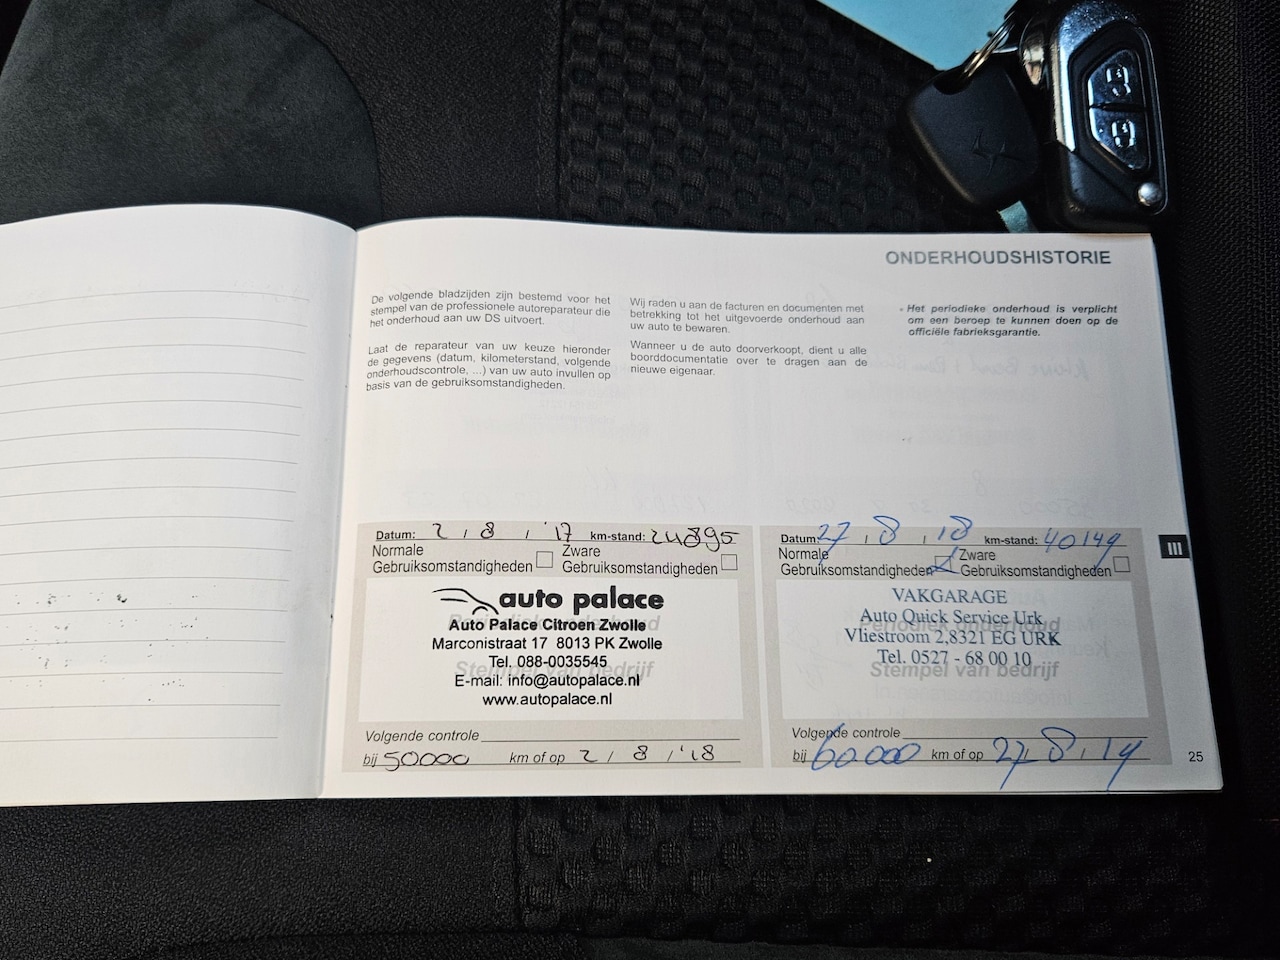 ONDERHOUDSHISTORIE
De volgende bladzijden zijn bestemd voor het
stempel van de professionele autoreparateur die
het onderhoud aan uw DS uitvoert.
Laat de reparateur van uw keuze hieronder
de gegevens (datum, kilometerstand, volgende
onderhoudscontrole, ...) van uw auto invullen op
basis van de gebruiksomstandigheden.
Wij raden u aan de facturen en documenten met
betrekking tot het uitgevoerde onderhoud aan
uw auto te bewaren.
Wanneer u de auto doorverkoopt, dient u alle
boorddocumentatie over te dragen aan de
nieuwe eigenaar.
Het periodieke onderhoud is verplicht
om een beroep te kunnen doen op de
officiële fabrieksgarantie.
Datum: 2 / 8 / '17 km-stand: 24895
Normale
Gebruiksomstandigheden
Zware
Gebruiksomstandigheden
auto palace
Auto Palace Citroen Zwolle
Marconistraat 17 8013 PK Zwolle
Tel. 088-0035545
Stempel van bedrijf
E-mail: info@autopalace.nl
www.autopalace.nl
Volgende controle
bij 50000 km of op 2 / 8 / '18
Datum: 27 / 8 / 18 km-stand: 40149
Normale
Gebruiksomstandigheden
Zware
Gebruiksomstandigheden
VAKGARAGE
Auto Quick Service Urk
Periodiek onderhoud
Vliestroom 2,8321 EG URK
Tel. 0527 - 68 00 10
Stempel van bedrijf
Volgende controle
bij 60.000 km of op 27 / 8 / 19
III
25